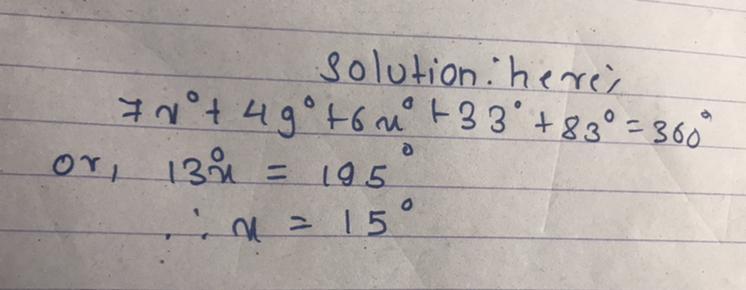 Solution: here;
7x° + 49° + 6x° + 33° + 83° = 360°
or, 13°x = 195°
∴ x = 15°